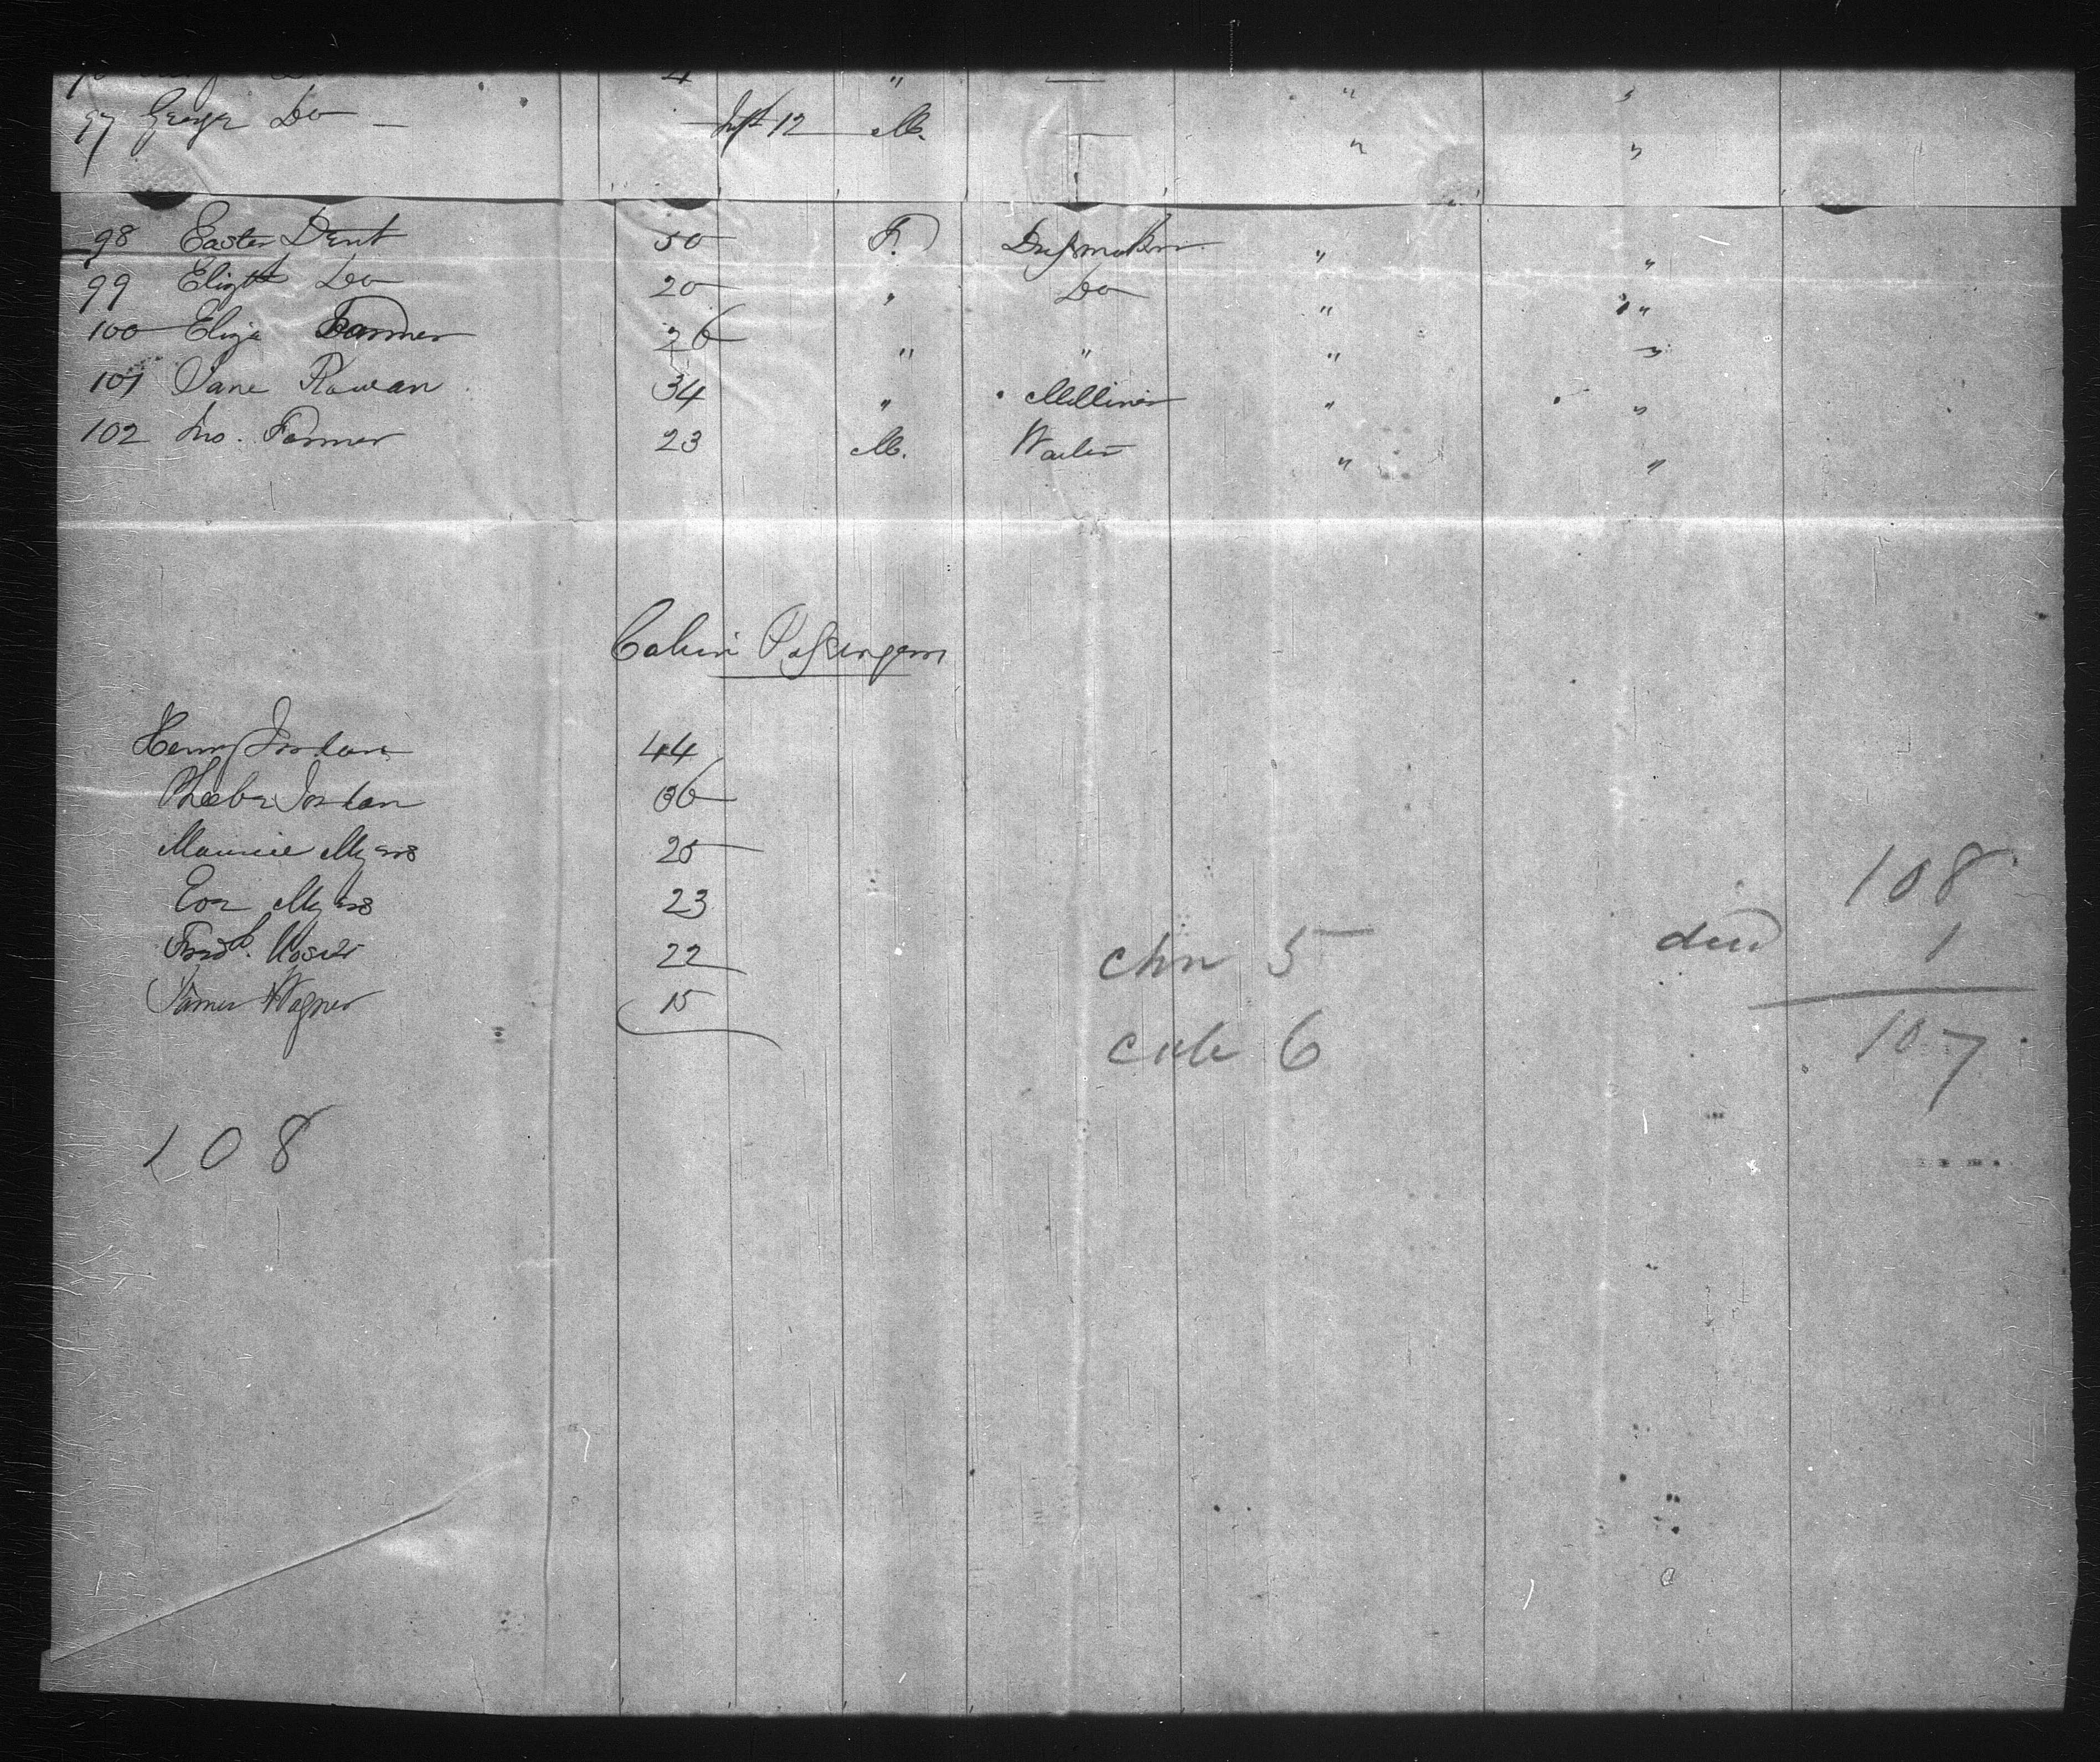 4 "  — " "
97 George Do — Inft 12 M. — " "
98 Easter Dent 50 F. Dressmaker " "
99 Elizth Do 20 " Do " "
100 Eliza Farmer 26 " " " "
101 Jane Rowan 34 " Milliner " "
102 Jno. Farmer 23 M. Waiter " "
Cabin Passengers
Henry Jordan 44
Phoebe Jordan 36
Maurice Myers 25
Eva Myers 23
Fredk. 22
James Wagner 15
108
chn 5
cab 6
108
died 1
107